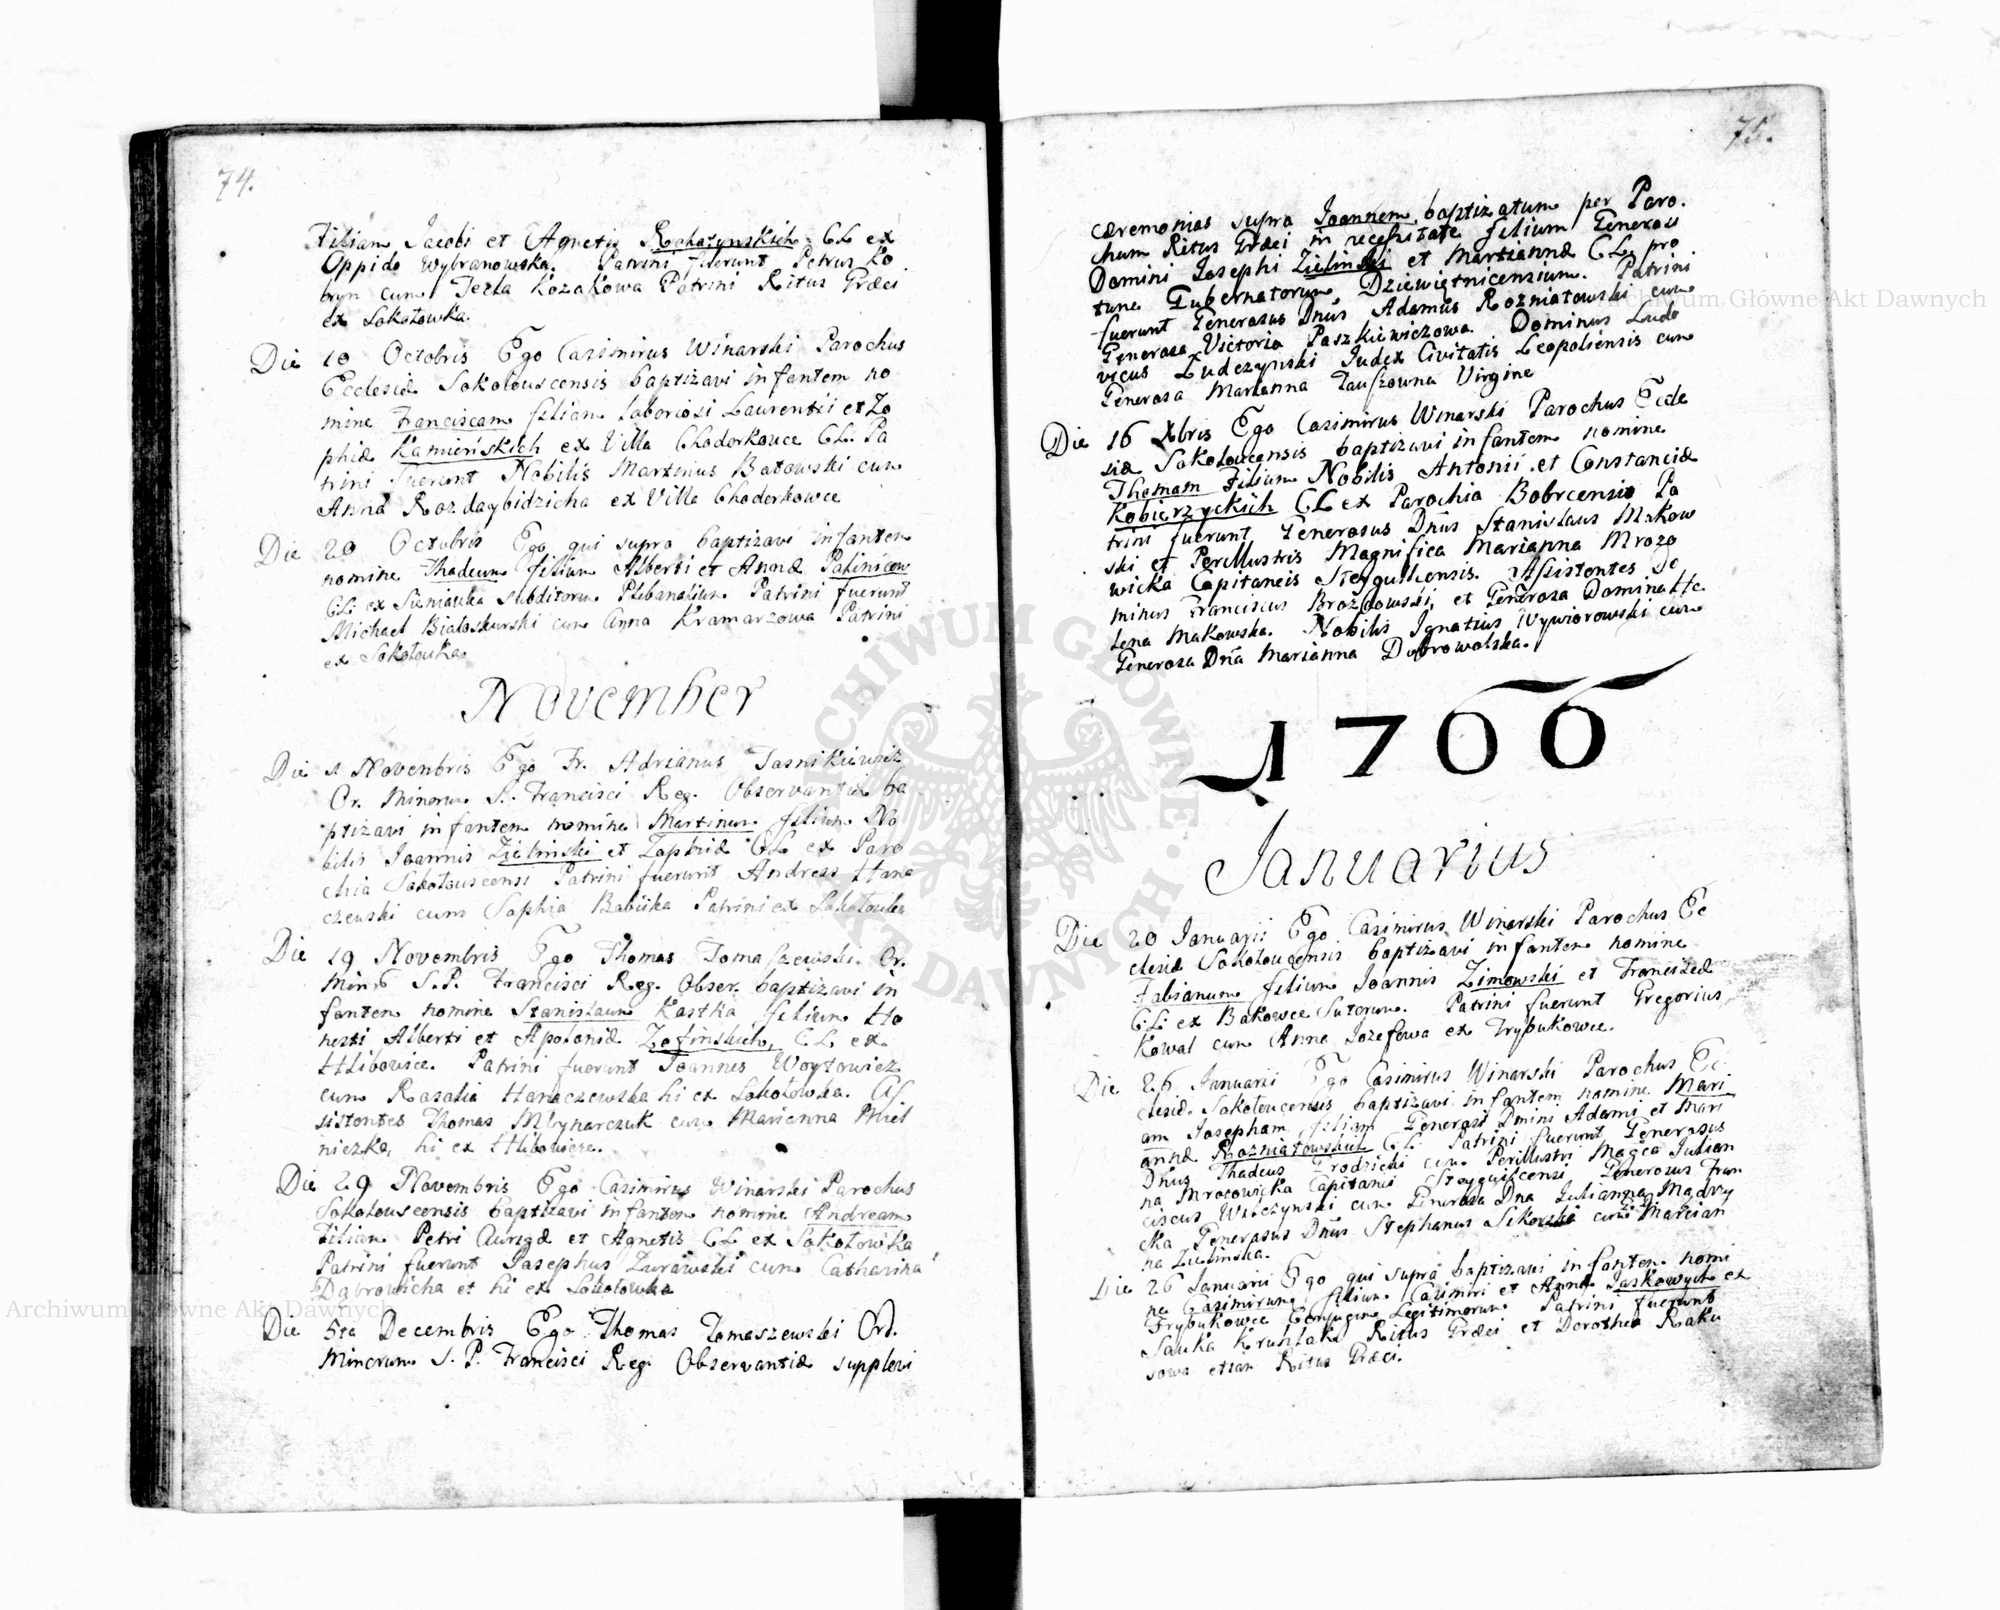 74.
Filiam Jacobi et Agnetis Rohatynskich CL ex
Oppido Wybranowska. Patrini fuerunt Petrus Ko
bryn cum Tecla Kozakowa Patrini Ritus Græci
ex Sokołowka.
Die 10 Octobris Ego Casimirus Winarski Parochus
Ecclesiæ Sokołouscensis baptizavi infantem no
mine Franciscam filiam laboriosi Laurentii et Zo
phiæ Kamieńskich ex Villa Choderkouce CL. Pa
trini fuerunt Nobilis Martinus Batowski cum
Anna Rozdaybidzicha ex Villa Choderkowce
Die 20 Octobris Ego qui supra baptizavi infantem
nomine Thadeum filium Alberti et Annæ
CL: ex Sieniauka subditorum Plebanalium Patrini fuerunt
Michael Białoskurski cum Anna Kramarzowa Patrini
ex Sokołouka.
November
Die 1 Novenbris Ego Fr. Adrianus Jasnikiewicz
Or. Minorum S. Francisci Reg. Observantiæ ba
ptizavi infantem nomine Martinum filium No
bilis Joannis Zielinski et Zophiæ CL ex Paro
chia Sokołouscensi Patrini fuerunt Andreas Hana
czewski cum Sophia Babiika Patrini ex Sokołouka
Die 19 Novembris Ego Thomas Tomaszewski Or.
Min: S.P. Francisci Reg. Obser. baptizavi in
fantem nomine Stanislaum Kastka filium Ho
nesti Alberti et Apoloniæ Zofinskich, C.L ex
Hlibowice. Patrini fuerunt Joannes Woytowicz
cum Rosalia Hanaczewska hi ex Sokołowka. As
sistentes Thomas Młynarczuk cum Marianna Miel
niczka, hi ex Hlibowice.
Die 29 Novembris Ego Casimirus Winarski Parochus
Sokołouscensis baptizavi infantem nomine Andream
Filium Petri Aurigæ et Agnetis CL ex Sokołowka
Patrini fuerunt Josephus Zurawski cum Catharina
Dąbrowicha et hi ex Sokołowka
Die 5ta Decembris Ego Thomas Tomaszewski Ord.
Minorum S. P. Francisci Reg. Observantiæ supplevi
75.
cæremonias supra Joannem baptizatum per Paro.
chum Ritus Græci in necessitate filium Generosi
Domini Josephi Zielinski et Martiannæ CL, pro
tunc Gubernatorum Dziewiętnicensium. Patrini
fuerunt Generosus Dnus Adamus Rozniatowski cum
Generosa Victoria Paszkiewiczowa. Dominus Ludo
vicus Ludczynski Judex Civitatis Leopoliensis cum
Generosa Marianna Tauszowna Virgine
Die 16 Xbris Ego Casimirus Winarski Parochus Eccle
siæ Sokołoucensis baptizavi infantem nomine
Thomam Filium Nobilis Antonii et Constanciæ
Kobierzyckich CL ex Parochia Bobrcensis Pa
trini fuerunt Generosus Dnus Stanislaus Makow
ski et Perillustris Magnifica Marianna Mrozo
wicka Capitaneis Stęgwilensis. Assistentes Do
minus Franciscus Brozdowski, et Generosa Domina He
lena Makowska. Nobilis Ignatius Wywiorowski cum
Generosa Dna Marianna Dobrowolska.
1766
Januarius
Die 20 Januarii Ego Casimirus Winarski Parochus Ec
clesiæ Sokołoucensis baptizavi infantem nomine
Fabianum filium Joannis Zimowski et Franciscæ
C.L: ex Bakowce Sutorum. Patrini fuerunt Gregorius
Kowal cum Anna Jozefowa ex Trybukowce.
Die 26 Januarii Ego Casimirus Winarski Parochus Ec
clesiæ Sokołoucensis baptizavi infantem nomine Mari
am Josepham filiam Generosi Dmini Adami et Mari
annæ Rozniatowskich C.L: Patrini fuerunt Generosus
Dnus Thadeus Grodzicki cum Perillustri Magca Julian
na Mrozowicka Capitanei Generosus Fran
ciscus Wilczynski cum Generosa Dna Julianna Mądry
cka Generosus Dnus Stephanus Sikorski cum Marcian
na Zielinska.
Die 26 Januarii Ego qui supra baptizavi infantem nomi
ne Casimirum filium Casimiri et Annæ Jaskowych ex
Trybukowce Conjugum Legitimorum Patrini fuerunt
Sauka Krushlak Ritus Græci et Dorothea Raku
sowa etiam Ritus Græci.
Archiwum Główne Akt Dawnych
Archiwum Główne Akt Dawnych
ARCHIWUM GŁÓWNE AKT DAWNYCH